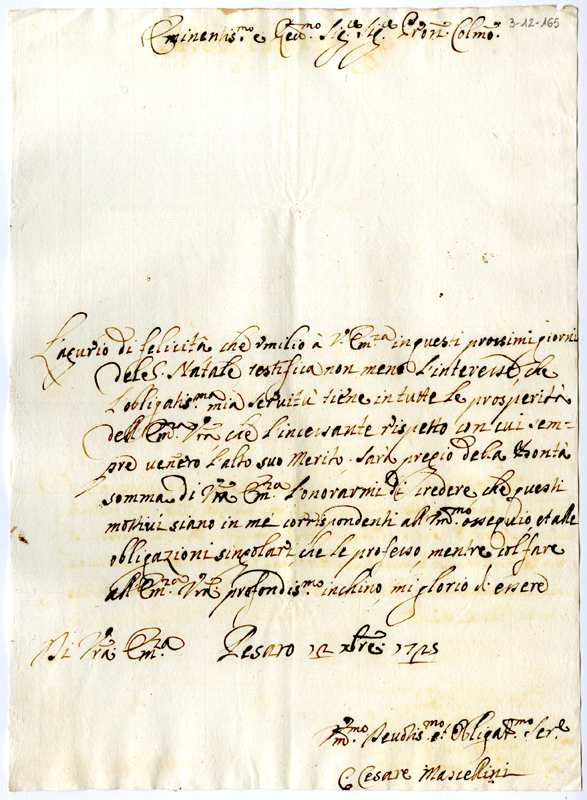 Eminentis.mo e Rev.mo Sig.re Sig.re Pron. Colmo.
3-12-165
L'agurio di felicità che umilio à V.ra Em.za in questi prossimi giorni
del S. Natale testifica non meno l'interesse, che
l'obligatis.ma mia servitù tiene in tutte le prosperità
dell'Em.za V.ra che l'incessante rispetto con cui sem-
pre venero l'alto suo Merito. Sarà pregio della Bontà
somma di V.ra Em.za l'onorarmi di credere che questi
mottivi siano in me corrispondenti all'Um.mo ossequio, et alle
obligazioni singolari, che le professo, mentre col fare
all'Em.za V.ra profondis.mo inchino, mi glorio di essere
Di V.ra Em.za Pesaro 12 xbre 1725
Um.mo Devotis.mo et Obligat.mo Ser.e
Cesare Mascellini